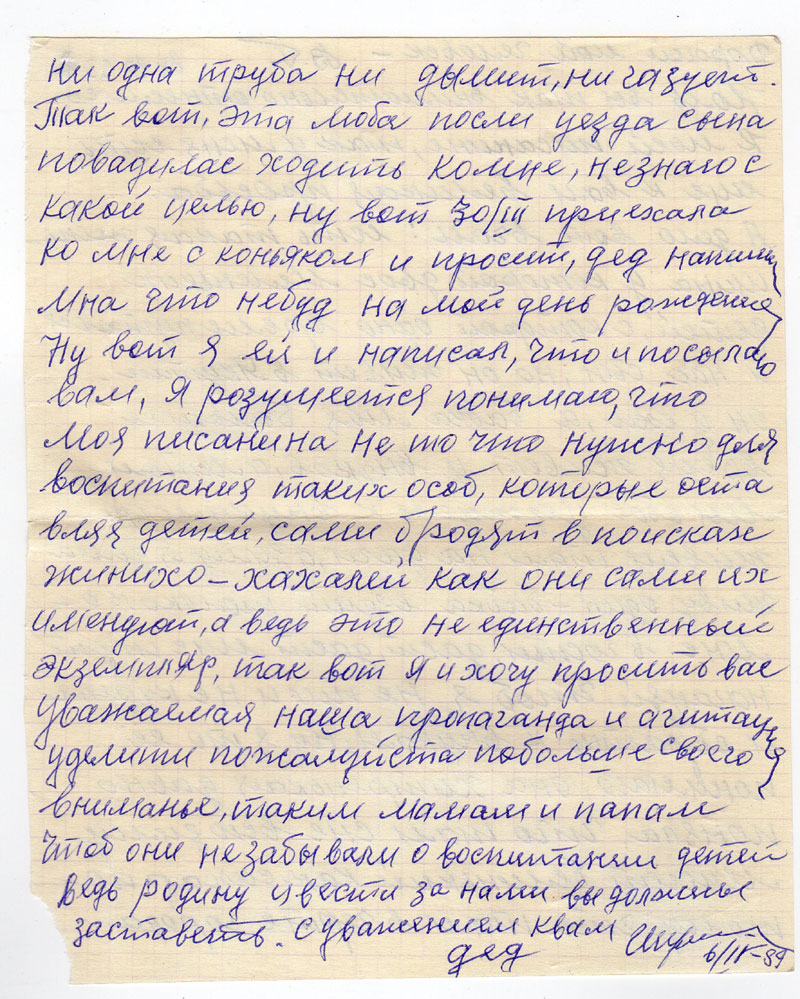 ни одна труба ни дымит, ни газует.
Так вот, эта люба посли уезда сына
повадилас ходить комне, незнаю с
какой целью, ну вот 30/III приехала
ко мне с коньяком и просит, дед напиши
мна что небуд на мой день рождения
Ну вот я ей и написал, что и посылаю
вам, Я розумеется понимаю, что
моя писанина не то что нужно для
воспитания таких особ, которые оста
вляя детей, сами бродят в поисках
жинихо-хахалей как они сами их
именуют, а ведь это не единственный
экземпляр, так вот я и хочу просить вас
уважаемая наша пропаганда и агитация
уделити пожалуйста побольше своего
вниманье, таким мамам и папам
чтоб они незабывали о воспитании детей
Ведь родину цвести за нами вы должны
заставеть. с уважением квам
дед 6/IV-89